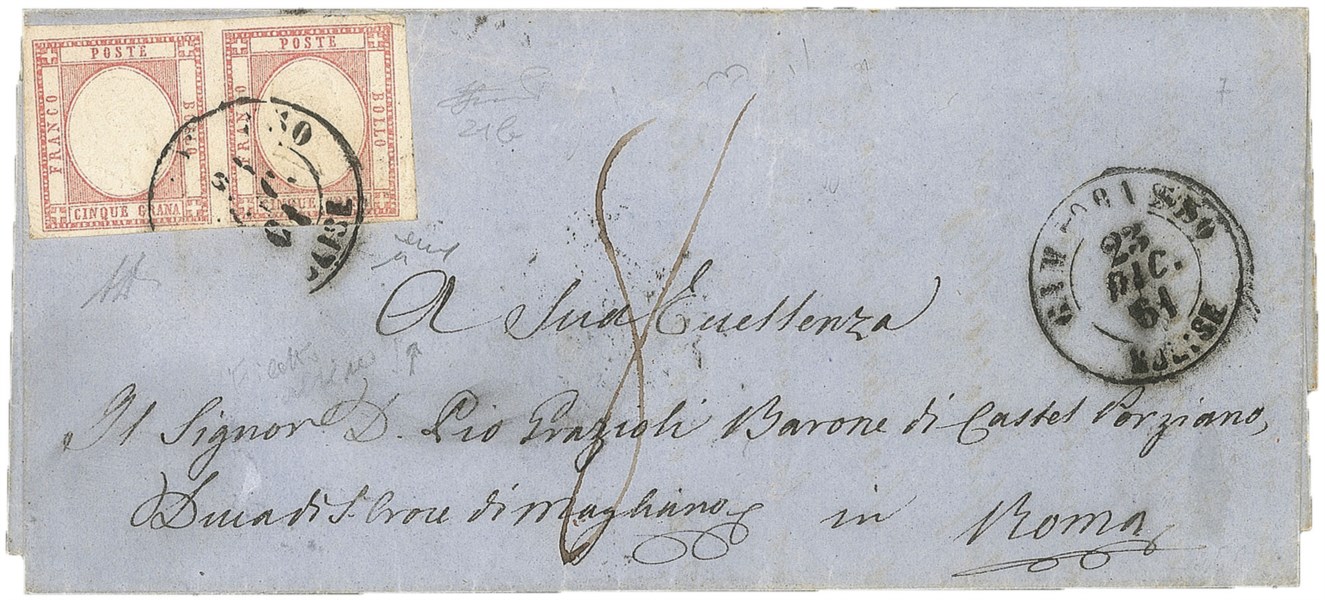 POSTE
FRANCO
BOLLO
CINQUE GRANA
POSTE
FRANCO
BOLLO
CINQUE GRANA
7
CAMPOBASSO
23
DIC.
61
MOLISE
8
A Sua Eccellenza
Il Signor D. Pio Grazioli Barone di Castel Porziano,
Duca di S. Croce di Magliano
in Roma